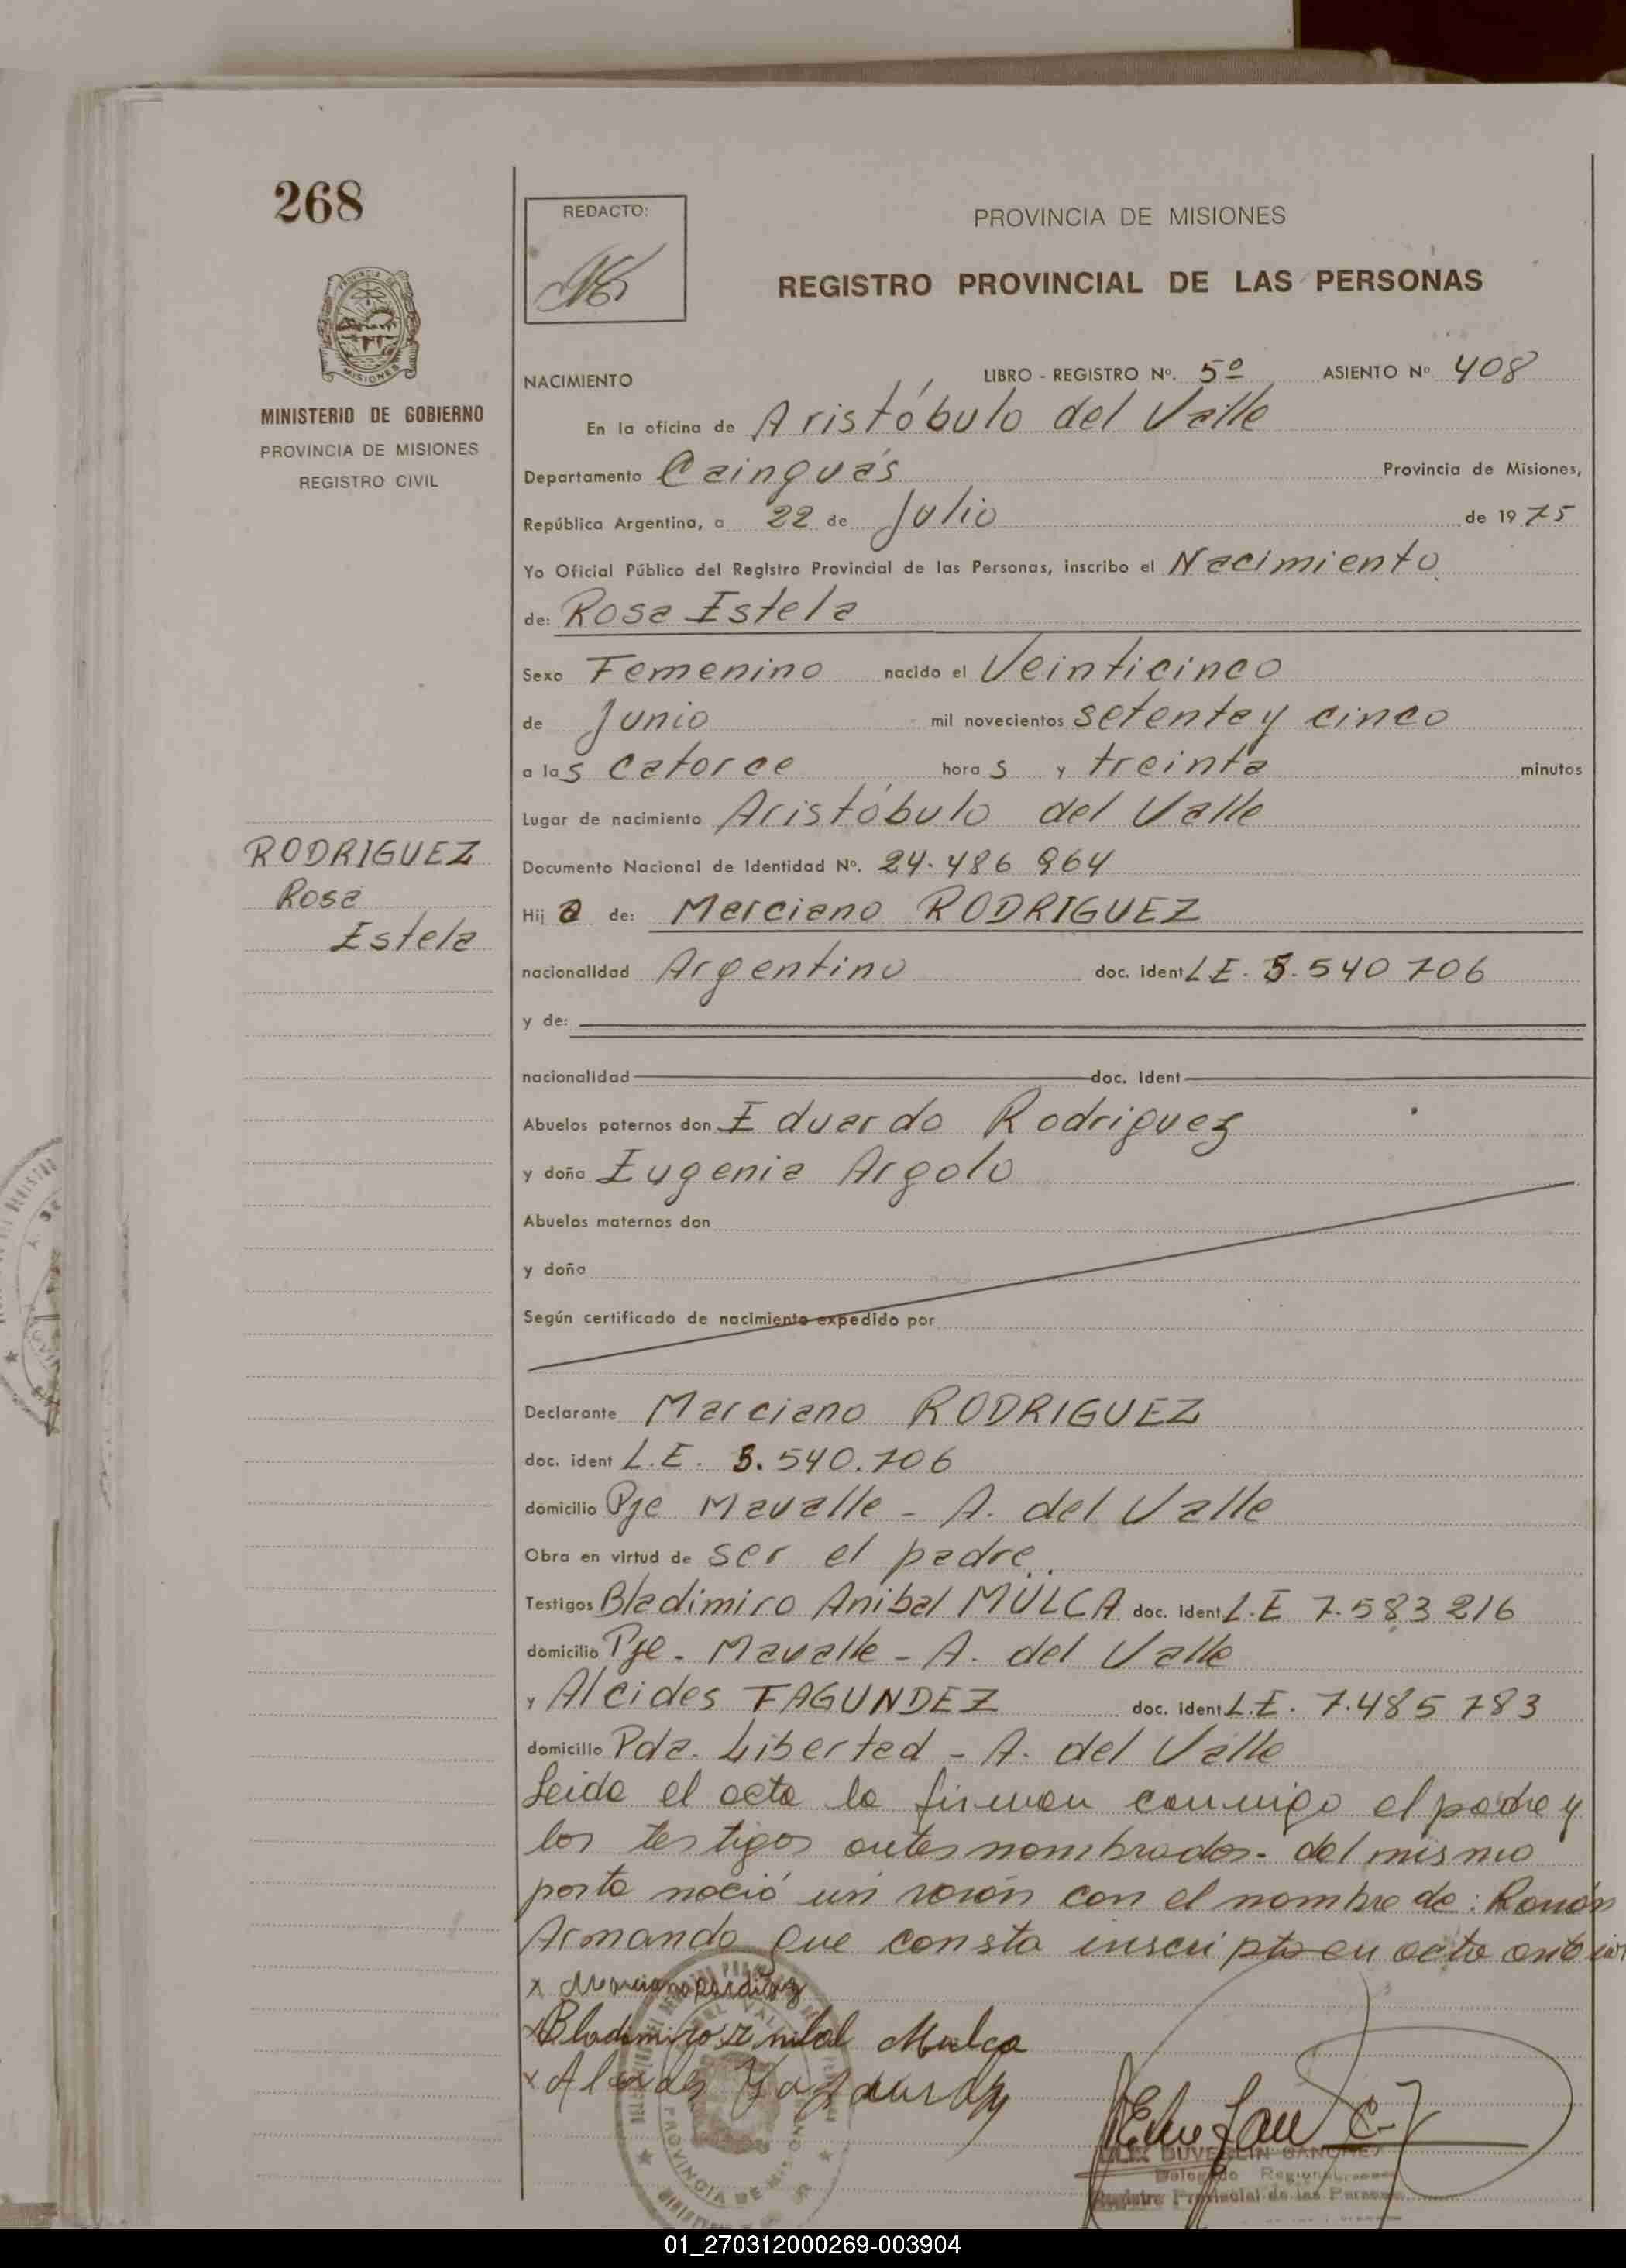 268
REDACTO:
PROVINCIA DE MISIONES
REGISTRO PROVINCIAL DE LAS PERSONAS
MISIONES
MINISTERIO DE GOBIERNO
PROVINCIA DE MISIONES
REGISTRO CIVIL
NACIMIENTO LIBRO - REGISTRO Nº. 5º ASIENTO Nº 408
En la oficina de Aristóbulo del Valle
Departamento Cainguás Provincia de Misiones,
República Argentina, a 22 de Julio de 1975
Yo Oficial Público del Registro Provincial de las Personas, inscribo el Nacimiento
de: Rosa Estela
Sexo Femenino nacido el Veinticinco
de Junio mil novecientos setenta y cinco
a las catorce horas y treinta minutos
Lugar de nacimiento Aristóbulo del Valle
RODRIGUEZ
Rosa
Estela
Documento Nacional de Identidad Nº. 24.486 964
Hija de: Marciano RODRIGUEZ
nacionalidad Argentino doc. ident L E. 5.540 706
y de:
nacionalidad doc. ident
Abuelos paternos don Eduardo Rodriguez
y doña Eugenia Argolo
Abuelos maternos don
y doña
Según certificado de nacimiento expedido por
Declarante Marciano RODRIGUEZ
doc. ident L.E. 5.540.706
domicilio Pje Mavalle - A. del Valle
Obra en virtud de ser el padre.
Testigos Bladimiro Anibal MULCA doc. ident L.E 7.583 216
domicilio Pje - Mavalle - A. del Valle
y Alcides FAGUNDEZ doc. ident L.E. 7.485 783
domicilio Pda. Libertad - A. del Valle
Leida el acta la firman conmigo el padre y
los testigos antes nombrados - del mismo
parto nació un varón con el nombre de: Ramón
Armando que consta inscripto en acta anterior
x Marciano Rodriguez
x Bladimiro Anibal Mulca
x Alcides Fagundez
PROVINCIA DE MISIONES
SANCHEZ
Delegado Regional
Registro Provincial de las Personas
01_270312000269-003904